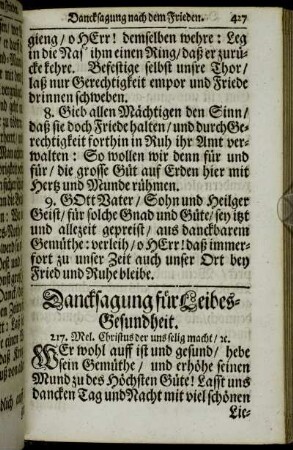 Dancksagung nach dem Frieden. 427
gieng/ o HErr! demselben wehre: Leg
in die Nas' ihm einen Ring/ daß er zurü-
cke kehre. Befestige selbst unsre Thor/
laß nur Gerechtigkeit empor und Friede
drinnen schweben.
8. Gieb allen Mächtigen den Sinn/
daß sie doch Friede halten/ und durch Ge-
rechtigkeit forthin in Ruh ihr Amt ver-
walten: So wollen wir denn für und
für/ die grosse Güt auf Erden hier mit
Hertz und Munde rühmen.
9. GOtt Vater/ Sohn und Heilger
Geist/ für solche Gnad und Güte/ sey itzt
und allezeit gepreist/ aus danckbarem
Gemüthe: verleih/ o HErr! daß immer-
fort zu unser Zeit auch unser Ort bey
Fried und Ruhe bleibe.
Dancksagung für Leibes-
Gesundheit.
217. Mel. Christus der uns selig macht/ ꝛc.
WEr wohl auff ist und gesund/ hebe
sein Gemüthe/ und erhöhe seinen
Mund zu des Höchsten Güte! Lasst uns
dancken Tag und Nacht mit viel schönen
Lie-